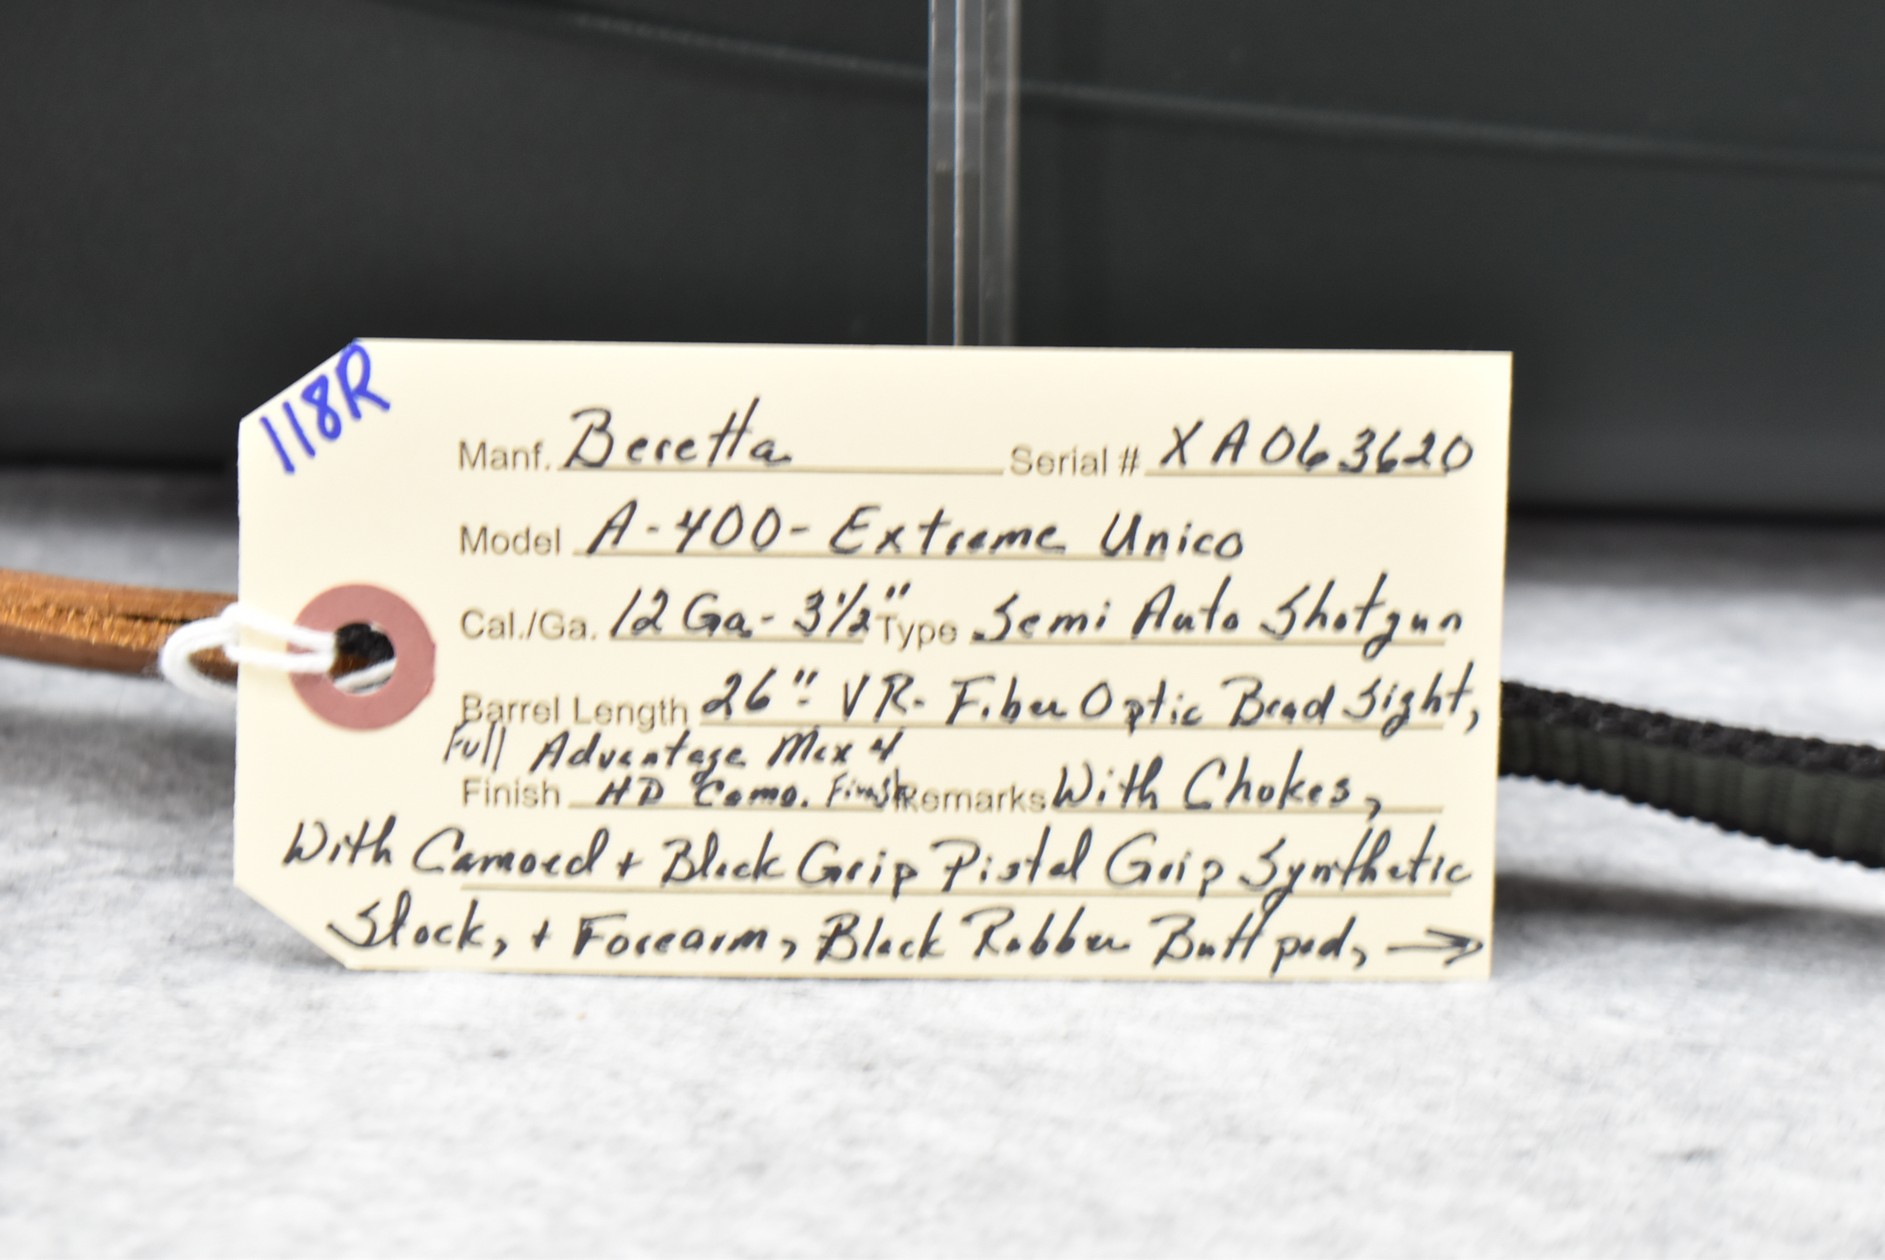 118R
Manf. Beretta Serial # XA063620
Model A-400-Extreme Unico
Cal./Ga. 12 Ga- 3½" Type Semi Auto Shotgun
Barrel Length 26" VR- Fiber Optic Bead Sight,
Full Advantage Max 4
Finish HD Camo. Finish Remarks With Chokes,
With Camoed + Black Grip Pistol Grip Synthetic
Stock, + Forearm, Black Rubber Butt pad, →